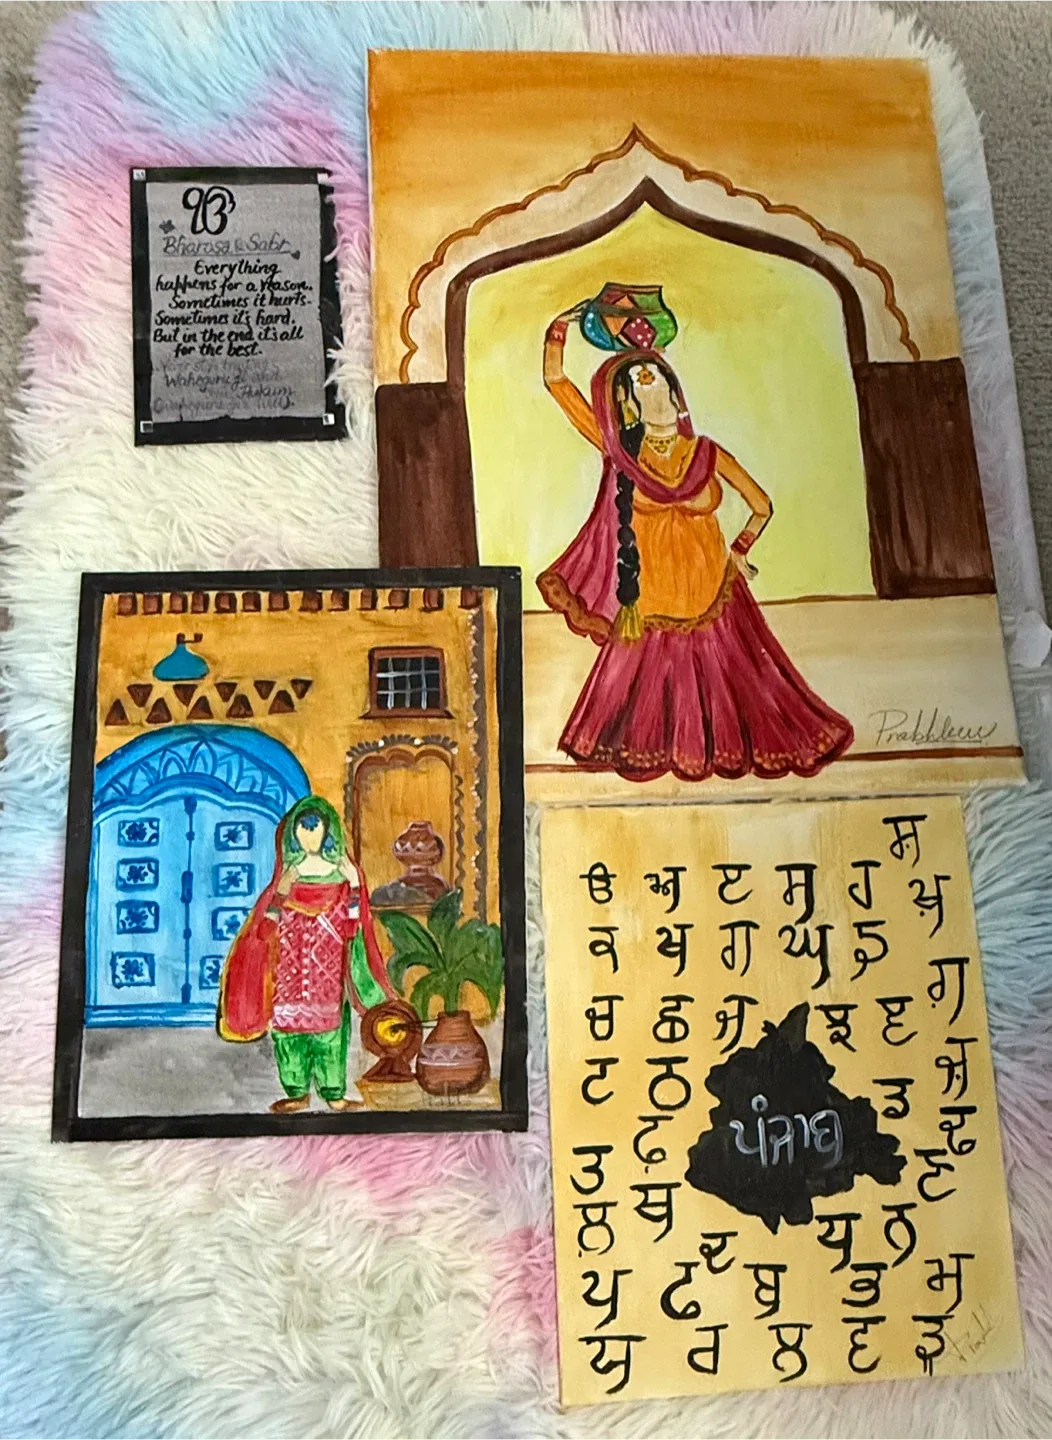 ੴ
Bharosa & Sabr
Everything
happens for a reason.
Sometimes it hurts.
Sometimes it's hard.
But in the end it's all
for the best.
Waheguru ji
Hukum
Prabhleen
ਸ਼
ੳ ਅ ੲ ਸ ਹ
ਖ਼
ਕ ਖ ਗ ਘ ਙ
ਗ਼
ਚ ਛ ਜ ਝ ਞ
ਜ਼
ਟ ਠ ਡ
ਢ
ਫ਼
ਣ
ਪੰਜਾਬ
ਤ ਥ
ਲ਼
ਦ ਧ ਨ
ਪ ਫ ਬ ਭ ਮ
ਯ ਰ ਲ ਵ ੜ